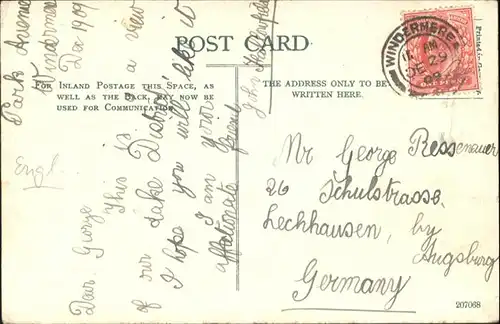 POST CARD
FOR INLAND POSTAGE THIS SPACE, AS
WELL AS THE BACK, MAY NOW BE
USED FOR COMMUNICATION.
THE ADDRESS ONLY TO BE
WRITTEN HERE.
WINDERMERE
AM
DE 29
09
Printed in
Park Avenue
Windermere
Dec 1909
Dear George
This is a view
of our Lake District
I hope you will like it
I am your
affetionate friend
John
Engl.
Mr George Ressenauer
26 Schulstrasse.
Lechhausen, by
Augsburg
Germany
207068